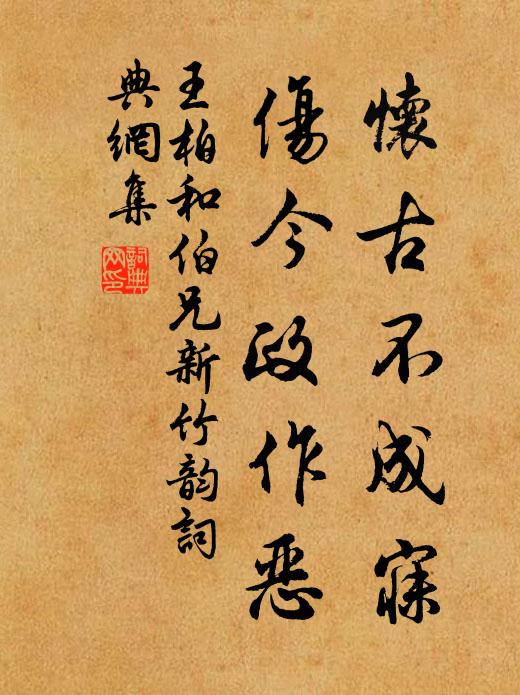 懷古不成寐
傷今政作惡
王柏和伯兄新竹韵詞
典網集
詞典網印